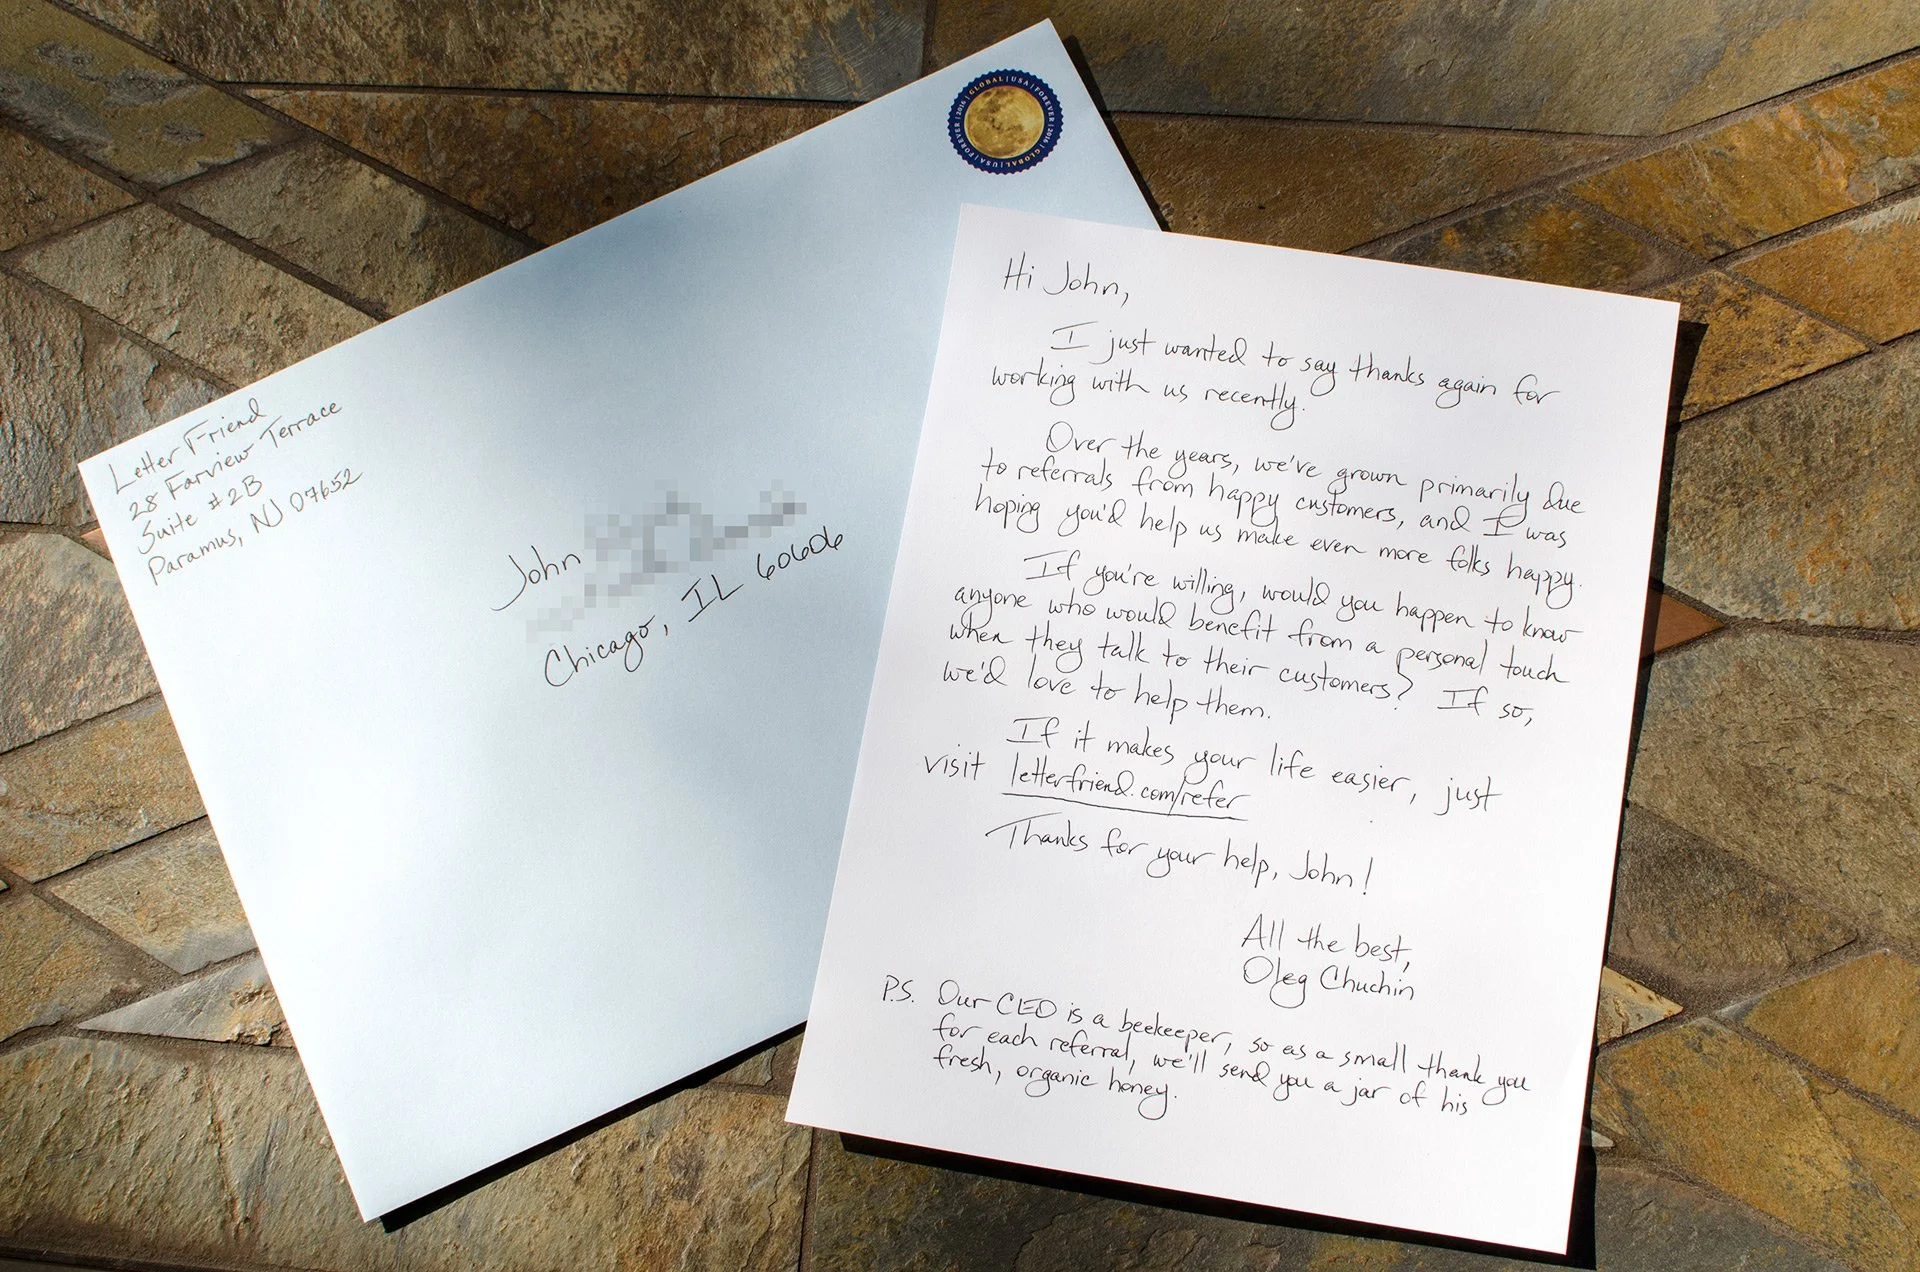 Letter Friend
28 Farview Terrace
Suite #2B
Paramus, NJ 07652
GLOBAL | USA | FOREVER | 2016 | GLOBAL | USA | FOREVER | 2016 |
John
Chicago, IL 60606
Hi John,
I just wanted to say thanks again for
working with us recently.
Over the years, we've grown primarily due
to referrals from happy customers, and I was
hoping you'd help us make even more folks happy.
If you're willing, would you happen to know
anyone who would benefit from a personal touch
when they talk to their customers? If so,
we'd love to help them.
If it makes your life easier, just
visit letterfriend.com/refer
Thanks for your help, John!
All the best,
Oleg Chuchin
P.S. Our CEO is a beekeeper, so as a small thank you
for each referral, we'll send you a jar of his
fresh, organic honey.